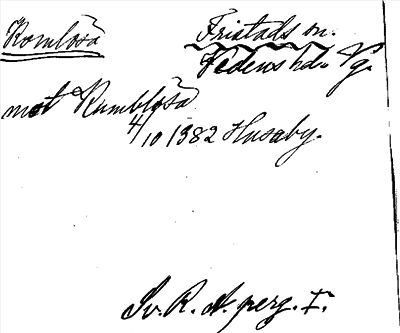 Romlösa
Fristads sn.
Vedens hd. Vg.
mot Rumblösa
4/10 1382 Husaby.
Sv. R. A. perg. I.